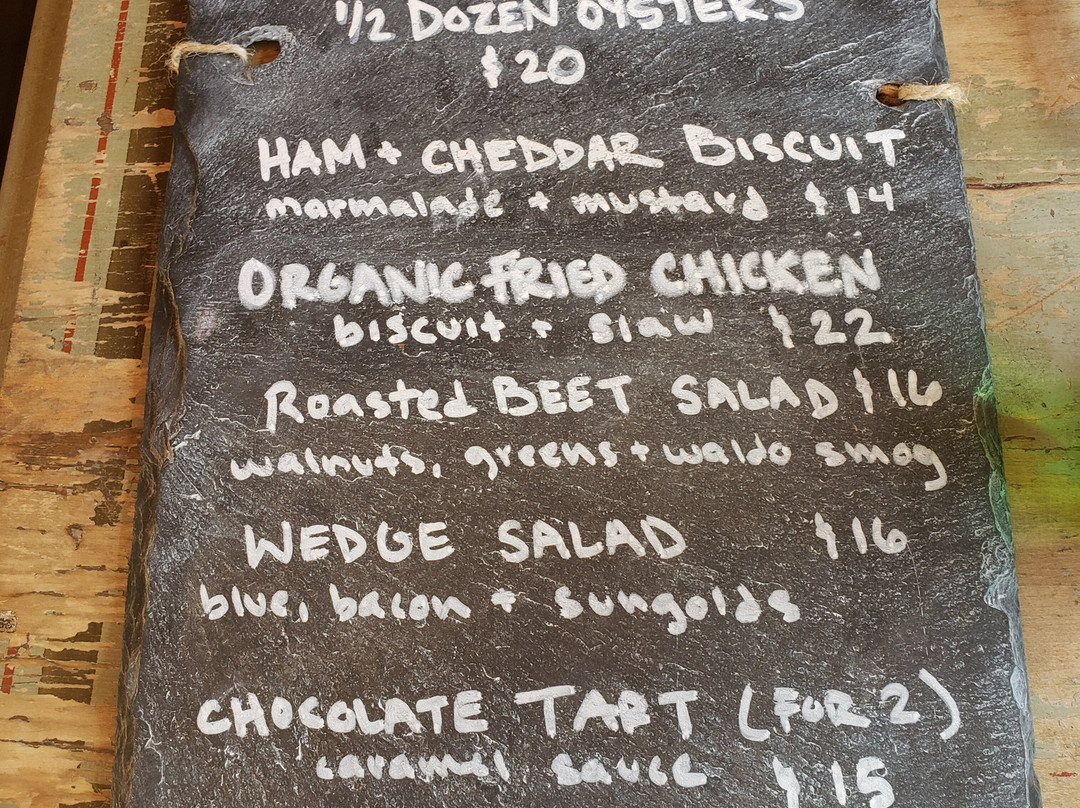 1/2 DOZEN OYSTERS
$20
HAM + CHEDDAR BISCUIT
marmalade + mustard $14
ORGANIC FRIED CHICKEN
biscuit + slaw $22
Roasted BEET SALAD $16
walnuts, greens + waldo smog
WEDGE SALAD $16
blue, bacon + sungolds
CHOCOLATE TART (FOR 2)
caramel sauce $15